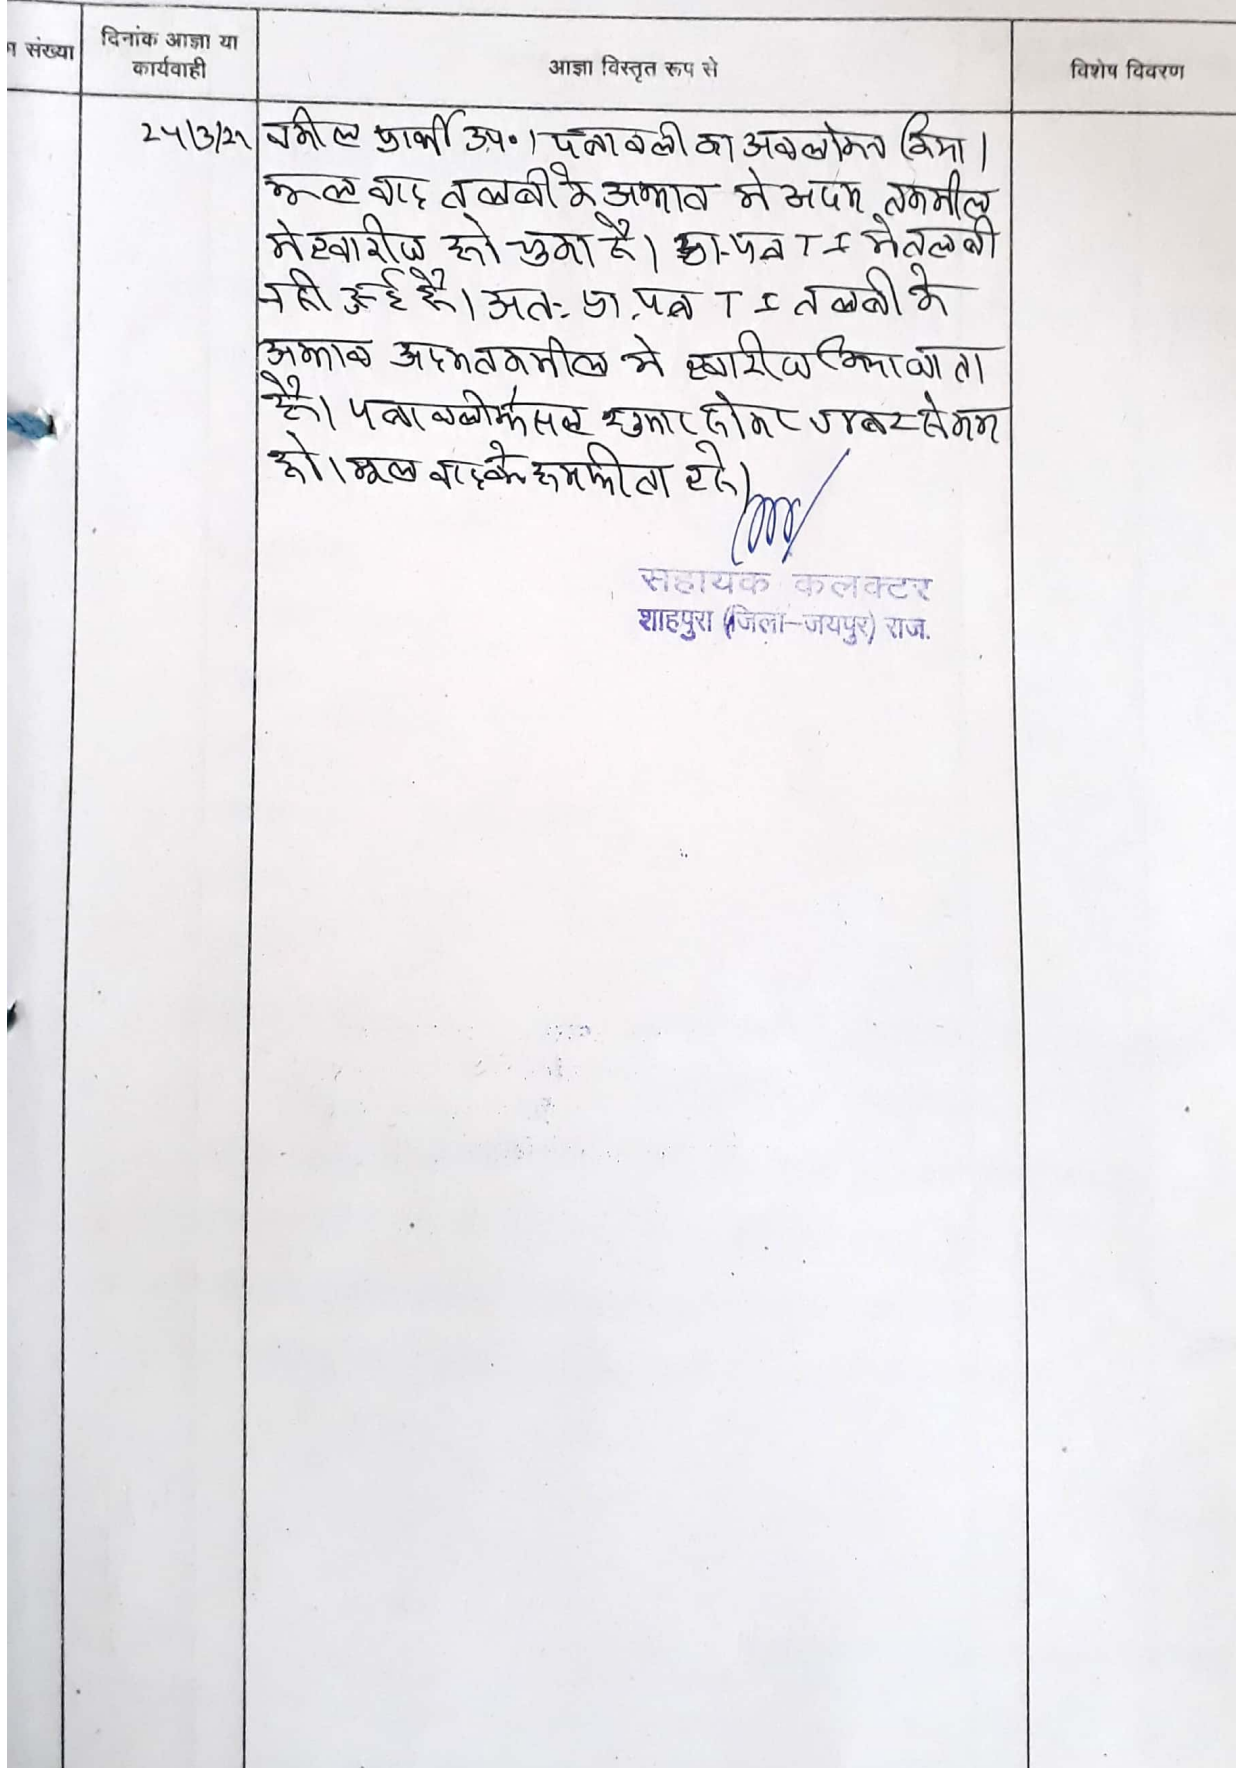 ा संख्या
दिनांक आज्ञा या
कार्यवाही
आज्ञा विस्तृत रूप से
विशेष विवरण
वकील प्रार्थी उप०। पत्रावली का अवलोकन किया।
मूल वाद तलबी के अभाव मे अदम तकमील
मे खारीज हो चुका है। प्रा.पत्र T I मे तलबी
नही हुई है। अतः प्रा.पत्र T I तलबी के
अभाव अदम तकमील मे खारीज किया जाता
है। पत्रावली फैसल शुमार होकर नम्बर से कम
हो। मूल वाद के हमफीता रहे।
सहायक कलक्टर
शाहपुरा (जिला-जयपुर) राज.